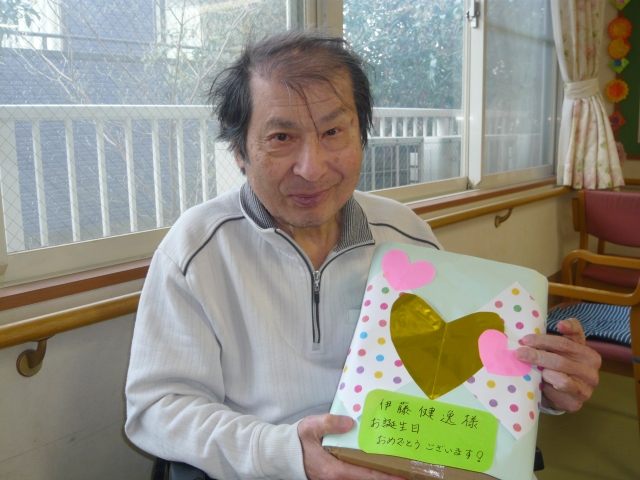 伊藤健逸様
お誕生日
おめでとうございます!